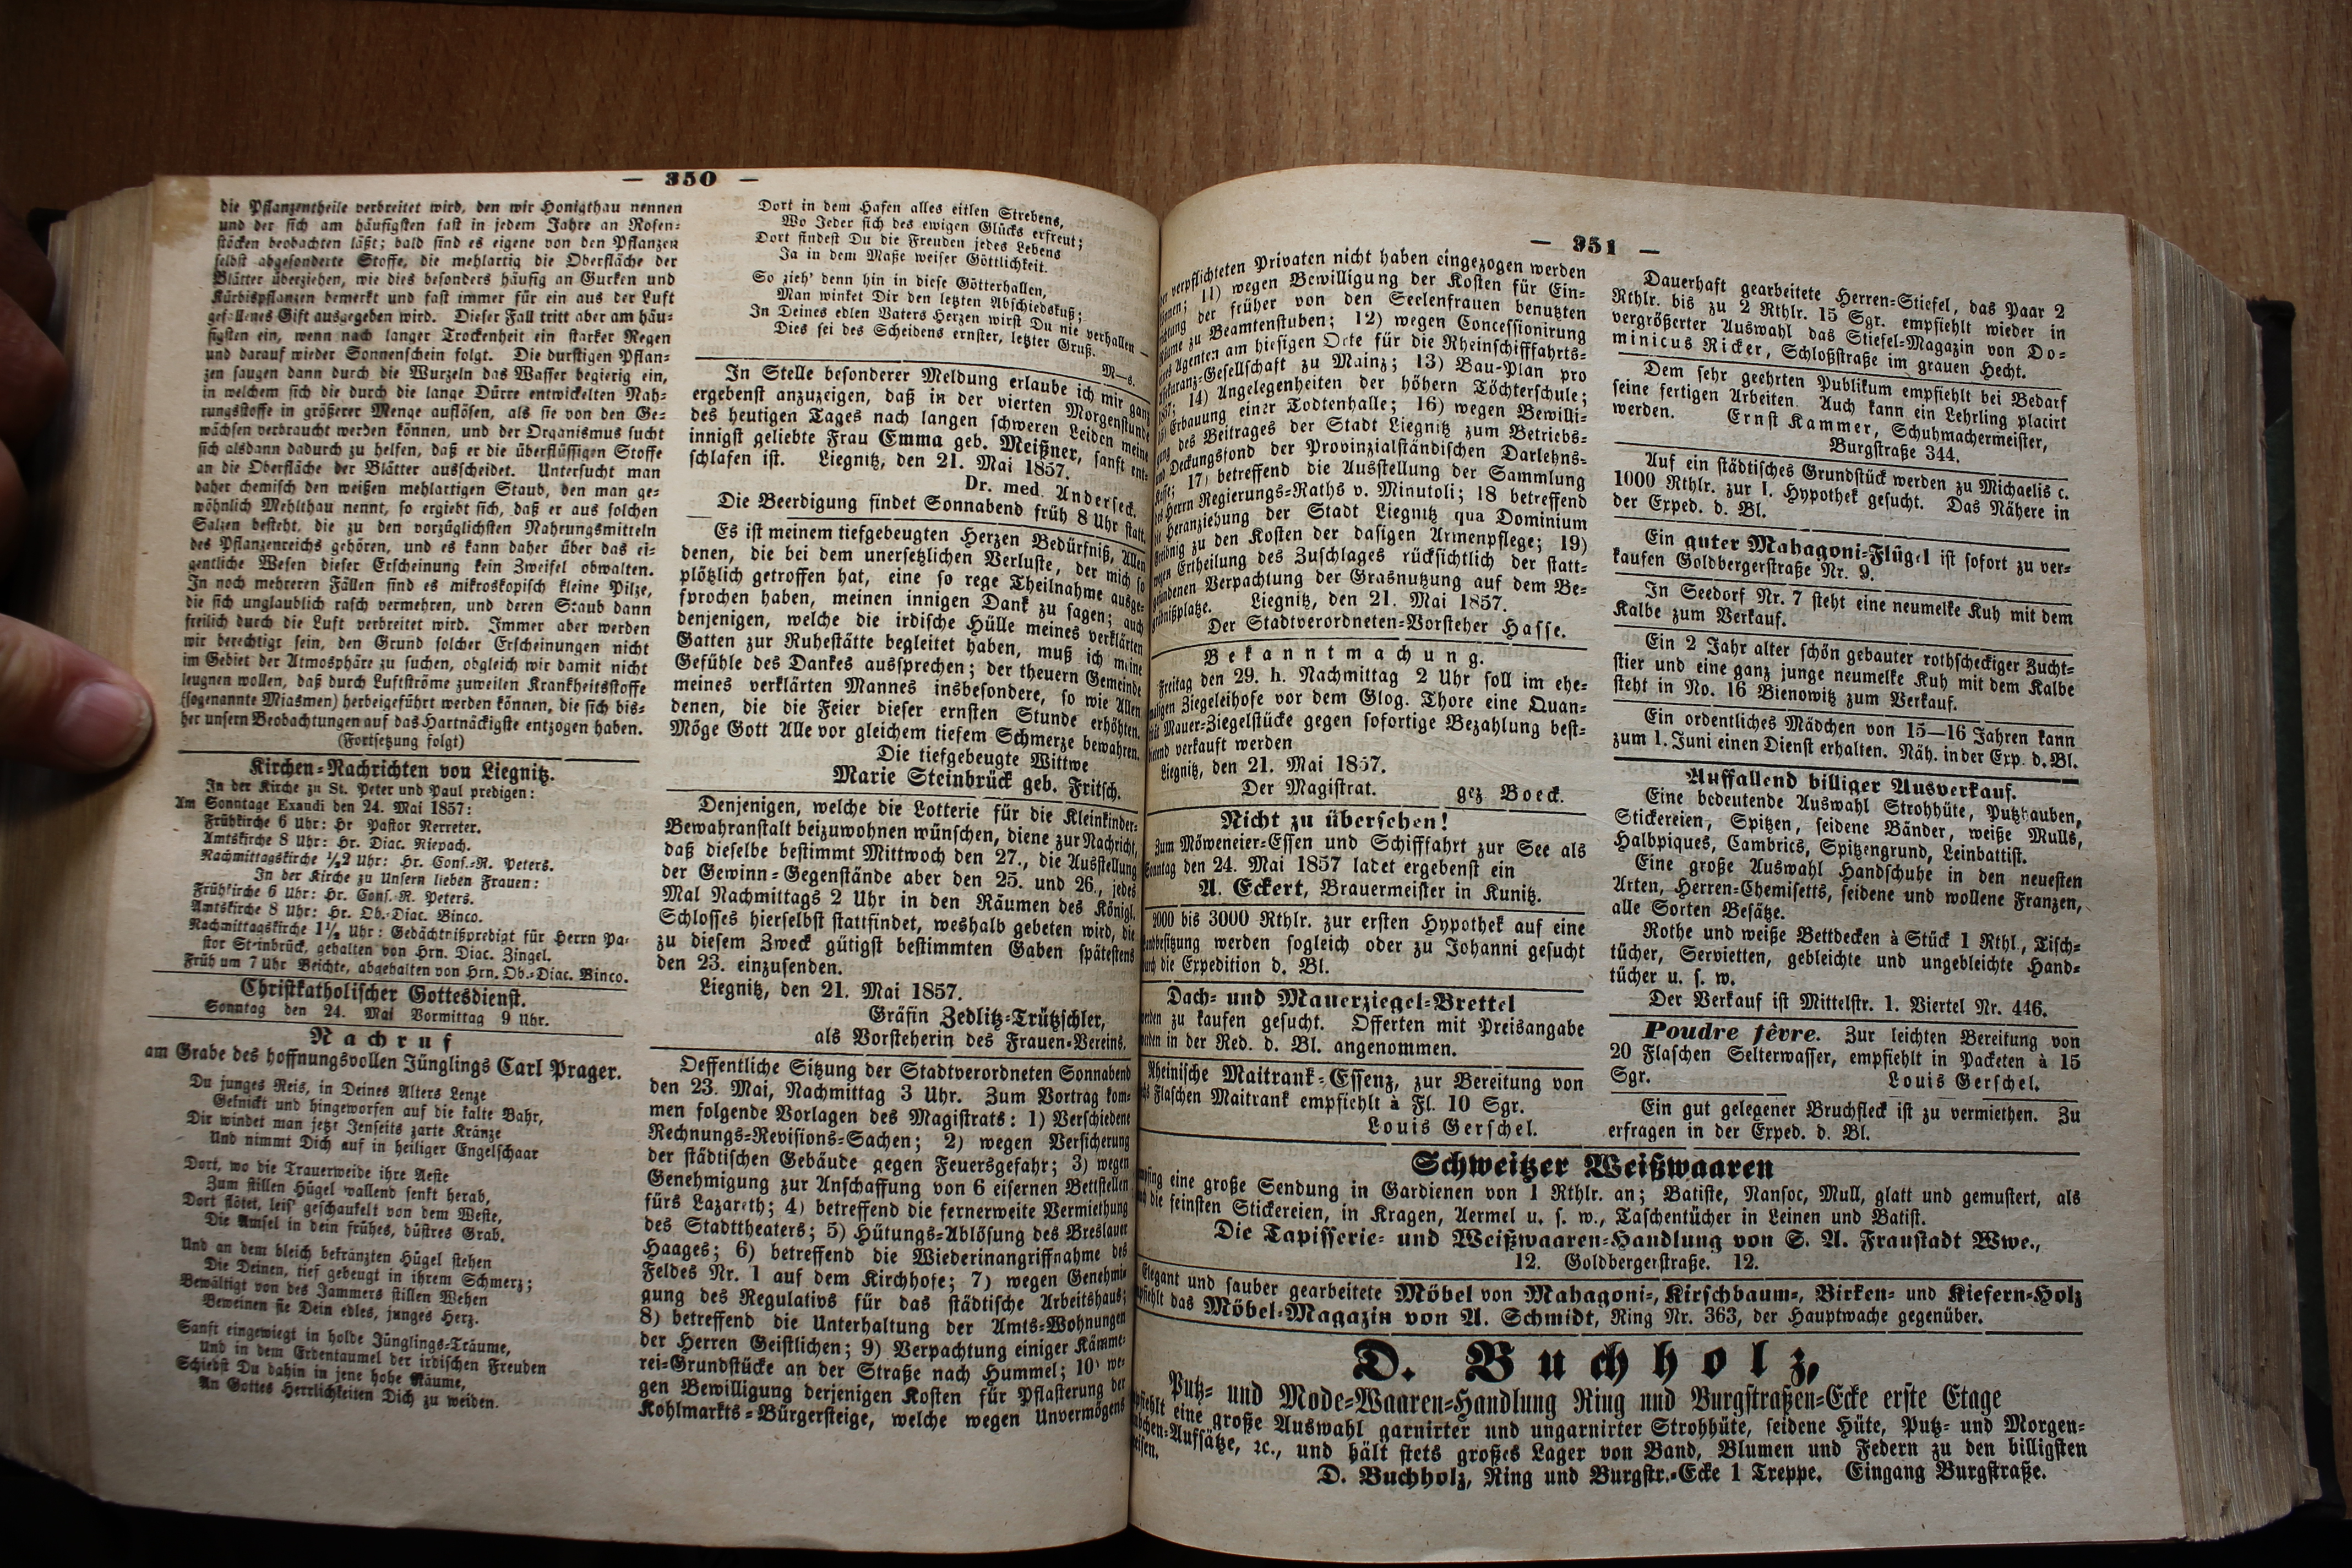 — 350 —
die Pflanzentheile verbreitet wird, den wir Honigthau nennen
und der sich am häufigsten fast in jedem Jahre an Rosen-
stöcken beobachten läßt; bald sind es eigene von den Pflanzen
selbst abgesonderte Stoffe, die mehlartig die Oberfläche der
Blätter überziehen, wie dies besonders häufig an Gurken und
Kürbispflanzen bemerkt und fast immer für ein aus der Luft
gefallenes Gift ausgegeben wird. Dieser Fall tritt aber am häu-
figsten ein, wenn nach langer Trockenheit ein starker Regen
und darauf wieder Sonnenschein folgt. Die durstigen Pflan-
zen saugen dann durch die Wurzeln das Wasser begierig ein,
in welchem sich die durch die lange Dürre entwickelten Nah-
rungsstoffe in größerer Menge auflösen, als sie von den Ge-
wächsen verbraucht werden können, und der Organismus sucht
sich alsdann dadurch zu helfen, daß er die überflüssigen Stoffe
an die Oberfläche der Blätter ausscheidet. Untersucht man
daher chemisch den weißen mehlartigen Staub, den man ge-
wöhnlich Mehlthau nennt, so ergiebt sich, daß er aus solchen
Salzen besteht, die zu den vorzüglichsten Nahrungsmitteln
des Pflanzenreichs gehören, und es kann daher über das ei-
gentliche Wesen dieser Erscheinung kein Zweifel obwalten.
In noch mehreren Fällen sind es mikroskopisch kleine Pilze,
die sich unglaublich rasch vermehren, und deren Staub dann
freilich durch die Luft verbreitet wird. Immer aber werden
wir berechtigt sein, den Grund solcher Erscheinungen nicht
im Gebiet der Atmosphäre zu suchen, obgleich wir damit nicht
leugnen wollen, daß durch Luftströme zuweilen Krankheitsstoffe
(sogenannte Miasmen) herbeigeführt werden können, die sich bis-
her unsern Beobachtungen auf das Hartnäckigste entzogen haben.
(Fortsetzung folgt)
Kirchen-Nachrichten von Liegnitz.
In der Kirche zu St. Peter und Paul predigen:
Am Sonntage Exaudi den 24. Mai 1857:
Frühkirche 6 Uhr: Hr Pastor Nerreter.
Amtskirche 8 Uhr: Hr. Diac. Niepach.
Nachmittagskirche ½2 Uhr: Hr. Cons.-R. Peters.
In der Kirche zu Unsern lieben Frauen:
Frühkirche 6 Uhr: Hr. Cons.-R. Peters.
Amtskirche 8 Uhr: Hr. Ob.-Diac. Binco.
Nachmittagskirche 1½ Uhr: Gedächtnißpredigt für Herrn Pa-
stor Steinbrück, gehalten von Hrn. Diac. Zingel.
Früh um 7 Uhr Beichte, abgehalten von Hrn. Ob.-Diac. Binco.
Christkatholischer Gottesdienst.
Sonntag den 24. Mai Vormittag 9 Uhr.
Nachruf
am Grabe des hoffnungsvollen Jünglings Carl Prager.
Du junges Reis, in Deines Alters Lenze
Geknickt und hingeworfen auf die kalte Bahr,
Dir windet man jetzt Jenseits zarte Kränze
Und nimmt Dich auf in heiliger Engelschaar
Dort, wo die Trauerweide ihre Aeste
Zum stillen Hügel wallend senkt herab,
Dort flötet, leis' geschaukelt von dem Weste,
Die Amsel in dein frühes, düstres Grab.
Und an dem bleich bekränzten Hügel stehen
Die Deinen, tief gebeugt in ihrem Schmerz;
Bewältigt von des Jammers stillen Wehen
Beweinen sie Dein edles, junges Herz.
Sanft eingewiegt in holde Jünglings-Träume,
Und in dem Erdentaumel der irdischen Freuden
Schiedst Du dahin in jene hohe Räume,
An Gottes Herrlichkeiten Dich zu weiden.
Dort in dem Hafen alles eitlen Strebens,
Wo Jeder sich des ewigen Glücks erfreut;
Dort findest Du die Freuden jedes Lebens
Ja in dem Maße weiser Göttlichkeit.
So zieh' denn hin in diese Götterhallen,
Man winket Dir den letzten Abschiedskuß;
In Deines edlen Vaters Herzen wirst Du nie verhallen —
Dies sei des Scheidens ernster, letzter Gruß.
M—s.
In Stelle besonderer Meldung erlaube ich mir ganz
ergebenst anzuzeigen, daß in der vierten Morgenstunde
des heutigen Tages nach langen schweren Leiden meine
innigst geliebte Frau Emma geb. Meißner, sanft ent-
schlafen ist. Liegnitz, den 21. Mai 1857.
Dr. med. Anderseck.
Die Beerdigung findet Sonnabend früh 8 Uhr statt.
Es ist meinem tiefgebeugten Herzen Bedürfniß, Allen
denen, die bei dem unersetzlichen Verluste, der mich so
plötzlich getroffen hat, eine so rege Theilnahme ausge-
sprochen haben, meinen innigen Dank zu sagen; auch
denjenigen, welche die irdische Hülle meines verklärten
Gatten zur Ruhestätte begleitet haben, muß ich meine
Gefühle des Dankes aussprechen; der theuern Gemeinde
meines verklärten Mannes insbesondere, so wie Allen
denen, die die Feier dieser ernsten Stunde erhöhten.
Möge Gott Alle vor gleichem tiefem Schmerze bewahren.
Die tiefgebeugte Wittwe
Marie Steinbrück geb. Fritsch.
Denjenigen, welche die Lotterie für die Kleinkinder-
Bewahranstalt beizuwohnen wünschen, diene zur Nachricht,
daß dieselbe bestimmt Mittwoch den 27., die Ausstellung
der Gewinn-Gegenstände aber den 25. und 26., jedes
Mal Nachmittags 2 Uhr in den Räumen des Königl.
Schlosses hierselbst stattfindet, weshalb gebeten wird, die
zu diesem Zweck gütigst bestimmten Gaben spätestens
den 23. einzusenden.
Liegnitz, den 21. Mai 1857.
Gräfin Zedlitz-Trützschler,
als Vorsteherin des Frauen-Vereins.
Oeffentliche Sitzung der Stadtverordneten Sonnabend
den 23. Mai, Nachmittag 3 Uhr. Zum Vortrag kom-
men folgende Vorlagen des Magistrats: 1) Verschiedene
Rechnungs-Revisions-Sachen; 2) wegen Versicherung
der städtischen Gebäude gegen Feuersgefahr; 3) wegen
Genehmigung zur Anschaffung von 6 eisernen Bettstellen
fürs Lazareth; 4) betreffend die fernerweite Vermiethung
des Stadttheaters; 5) Hütungs-Ablösung des Breslauer
Haages; 6) betreffend die Wiederinangriffnahme des
Feldes Nr. 1 auf dem Kirchhofe; 7) wegen Genehmi-
gung des Regulativs für das städtische Arbeitshaus;
8) betreffend die Unterhaltung der Amts-Wohnungen
der Herren Geistlichen; 9) Verpachtung einiger Kämme-
rei-Grundstücke an der Straße nach Hummel; 10) we-
gen Bewilligung derjenigen Kosten für Pflasterung der
Kohlmarkts-Bürgersteige, welche wegen Unvermögens
— 351 —
der verpflichteten Privaten nicht haben eingezogen werden
können; 11) wegen Bewilligung der Kosten für Ein-
richtung der früher von den Seelenfrauen benutzten
Räume zu Beamtenstuben; 12) wegen Concessionirung
eines Agenten am hiesigen Orte für die Rheinschifffahrts-
Assekuranz-Gesellschaft zu Mainz; 13) Bau-Plan pro
1857; 14) Angelegenheiten der höhern Töchterschule;
15) Erbauung einer Todtenhalle; 16) wegen Bewilli-
gung des Beitrages der Stadt Liegnitz zum Betriebs-
und Deckungsfond der Provinzialständischen Darlehns-
Kasse; 17) betreffend die Ausstellung der Sammlung
des Herrn Regierungs-Raths v. Minutoli; 18 betreffend
die Heranziehung der Stadt Liegnitz qua Dominium
zu den Kosten der dasigen Armenpflege; 19)
wegen Ertheilung des Zuschlages rücksichtlich der statt-
gefundenen Verpachtung der Grasnutzung auf dem Be-
gräbnißplatze. Liegnitz, den 21. Mai 1857.
Der Stadtverordneten-Vorsteher Hasse.
Bekanntmachung.
Freitag den 29. h. Nachmittag 2 Uhr soll im ehe-
maligen Ziegeleihofe vor dem Glog. Thore eine Quan-
tität Mauer-Ziegelstücke gegen sofortige Bezahlung best-
bietend verkauft werden
Liegnitz, den 21. Mai 1857.
Der Magistrat. gez Boeck.
Nicht zu übersehen!
Zum Möweneier-Essen und Schifffahrt zur See als
Sonntag den 24. Mai 1857 ladet ergebenst ein
A. Eckert, Brauermeister in Kunitz.
2000 bis 3000 Rthlr. zur ersten Hypothek auf eine
Landbesitzung werden sogleich oder zu Johanni gesucht
durch die Expedition d. Bl.
Dach- und Mauerziegel-Brettel
werden zu kaufen gesucht. Offerten mit Preisangabe
werden in der Red. d. Bl. angenommen.
Rheinische Maitrank-Essenz, zur Bereitung von
Flaschen Maitrank empfiehlt à Fl. 10 Sgr.
Louis Gerschel.
Dauerhaft gearbeitete Herren-Stiefel, das Paar 2
Rthlr. bis zu 2 Rthlr. 15 Sgr. empfiehlt wieder in
vergrößerter Auswahl das Stiefel-Magazin von Do-
minicus Ricker, Schloßstraße im grauen Hecht.
Dem sehr geehrten Publikum empfiehlt bei Bedarf
seine fertigen Arbeiten. Auch kann ein Lehrling placirt
werden. Ernst Kammer, Schuhmachermeister,
Burgstraße 344.
Auf ein städtisches Grundstück werden zu Michaelis c.
1000 Rthlr. zur 1. Hypothek gesucht. Das Nähere in
der Exped. d. Bl.
Ein guter Mahagoni-Flügel ist sofort zu ver-
kaufen Goldbergerstraße Nr. 9.
In Seedorf Nr. 7 steht eine neumelke Kuh mit dem
Kalbe zum Verkauf.
Ein 2 Jahr alter schön gebauter rothscheckiger Zucht-
stier und eine ganz junge neumelke Kuh mit dem Kalbe
steht in No. 16 Bienowitz zum Verkauf.
Ein ordentliches Mädchen von 15—16 Jahren kann
zum 1. Juni einen Dienst erhalten. Näh. in der Exp. d. Bl.
Auffallend billiger Ausverkauf.
Eine bedeutende Auswahl Strohhüte, Putzhauben,
Stickereien, Spitzen, seidene Bänder, weiße Mulls,
Halbpiques, Cambrics, Spitzengrund, Leinbattist.
Eine große Auswahl Handschuhe in den neuesten
Arten, Herren-Chemisetts, seidene und wollene Franzen,
alle Sorten Besätze.
Rothe und weiße Bettdecken à Stück 1 Rthl., Tisch-
tücher, Servietten, gebleichte und ungebleichte Hand-
tücher u. s. w.
Der Verkauf ist Mittelstr. 1. Viertel Nr. 446.
Poudre fèvre. Zur leichten Bereitung von
20 Flaschen Selterwasser, empfiehlt in Packeten à 15
Sgr. Louis Gerschel.
Ein gut gelegener Bruchfleck ist zu vermiethen. Zu
erfragen in der Exped. d. Bl.
Schweitzer Weißwaaren
empfing eine große Sendung in Gardienen von 1 Rthlr. an; Batiste, Nansoc, Mull, glatt und gemustert, als
auch die feinsten Stickereien, in Kragen, Aermel u. s. w., Taschentücher in Leinen und Batist.
Die Tapisserie- und Weißwaaren-Handlung von S. A. Fraustadt Wwe.,
12. Goldbergerstraße. 12.
Elegant und sauber gearbeitete Möbel von Mahagoni-, Kirschbaum-, Birken- und Kiefern-Holz
empfiehlt das Möbel-Magazin von A. Schmidt, Ring Nr. 363, der Hauptwache gegenüber.
D. Buchholz,
Putz- und Mode-Waaren-Handlung Ring und Burgstraßen-Ecke erste Etage
empfiehlt eine große Auswahl garnirter und ungarnirter Strohhüte, seidene Hüte, Putz- und Morgen-
Häubchen-Aufsätze, ꝛc., und hält stets großes Lager von Band, Blumen und Federn zu den billigsten
Preisen.
D. Buchholz, Ring und Burgstr.-Ecke 1 Treppe. Eingang Burgstraße.